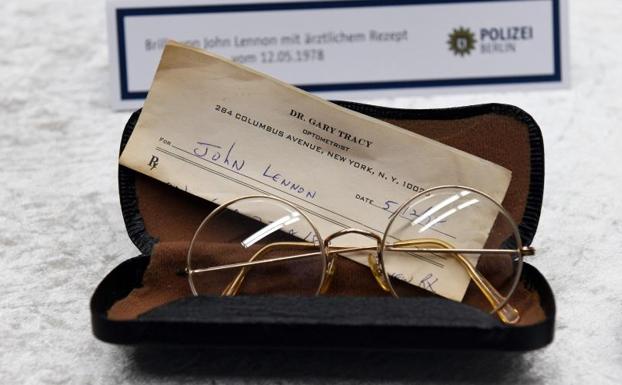 Brille von John Lennon mit ärztlichem Rezept
vom 12.05.1978
POLIZEI
BERLIN
DR. GARY TRACY
OPTOMETRIST
284 COLUMBUS AVENUE, NEW YORK, N. Y.
FOR John Lennon
DATE 5/12/
Rx
Rx